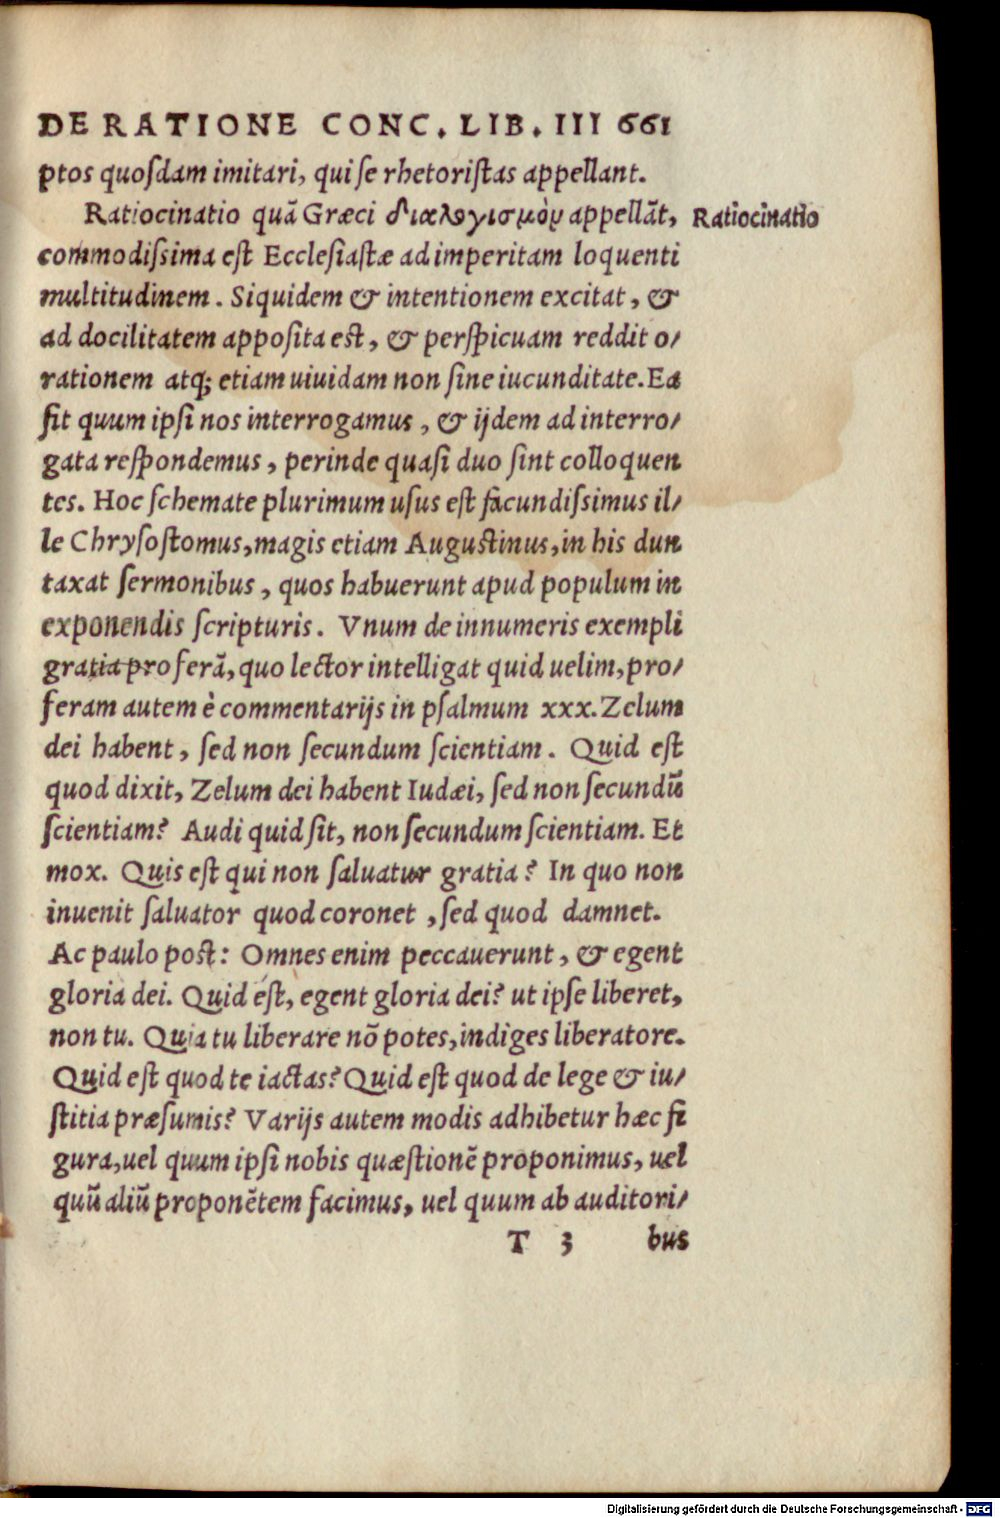 DE RATIONE CONC. LIB. III 661
ptos quoſdam imitari, qui ſe rhetoriſtas appellant.
Ratiocinatio quā Græci διαλογισμὸν appellāt, Ratiocinatio
commodiſsima eſt Eccleſiaſtæ ad imperitam loquenti
multitudinem. Siquidem & intentionem excitat, &
ad docilitatem appoſita eſt, & perſpicuam reddit o/
rationem atq; etiam uiuidam non ſine iucunditate. Ea
fit quum ipſi nos interrogamus, & ijdem ad interro/
gata reſpondemus, perinde quaſi duo ſint colloquen
tes. Hoc ſchemate plurimum uſus eſt facundiſsimus il/
le Chryſoſtomus, magis etiam Auguſtinus, in his dun
taxat ſermonibus, quos habuerunt apud populum in
exponendis ſcripturis. Vnum de innumeris exempli
gratia proferā, quo lector intelligat quid uelim, pro/
feram autem è commentarijs in pſalmum xxx. Zelum
dei habent, ſed non ſecundum ſcientiam. Quid eſt
quod dixit, Zelum dei habent Iudæi, ſed non ſecundū
ſcientiam? Audi quid ſit, non ſecundum ſcientiam. Et
mox. Quis eſt qui non ſaluatur gratia? In quo non
inuenit ſaluator quod coronet, ſed quod damnet.
Ac paulo poſt: Omnes enim peccauerunt, & egent
gloria dei. Quid eſt, egent gloria dei? ut ipſe liberet,
non tu. Quia tu liberare nō potes, indiges liberatore.
Quid eſt quod te iactas? Quid eſt quod de lege & iu/
ſtitia præſumis? Varijs autem modis adhibetur hæc fi
gura, uel quum ipſi nobis quæſtionē proponimus, uel
quū aliū proponētem facimus, uel quum ab auditori/
T 3 bus
Digitalisierung gefördert durch die Deutsche Forschungsgemeinschaft - DFG